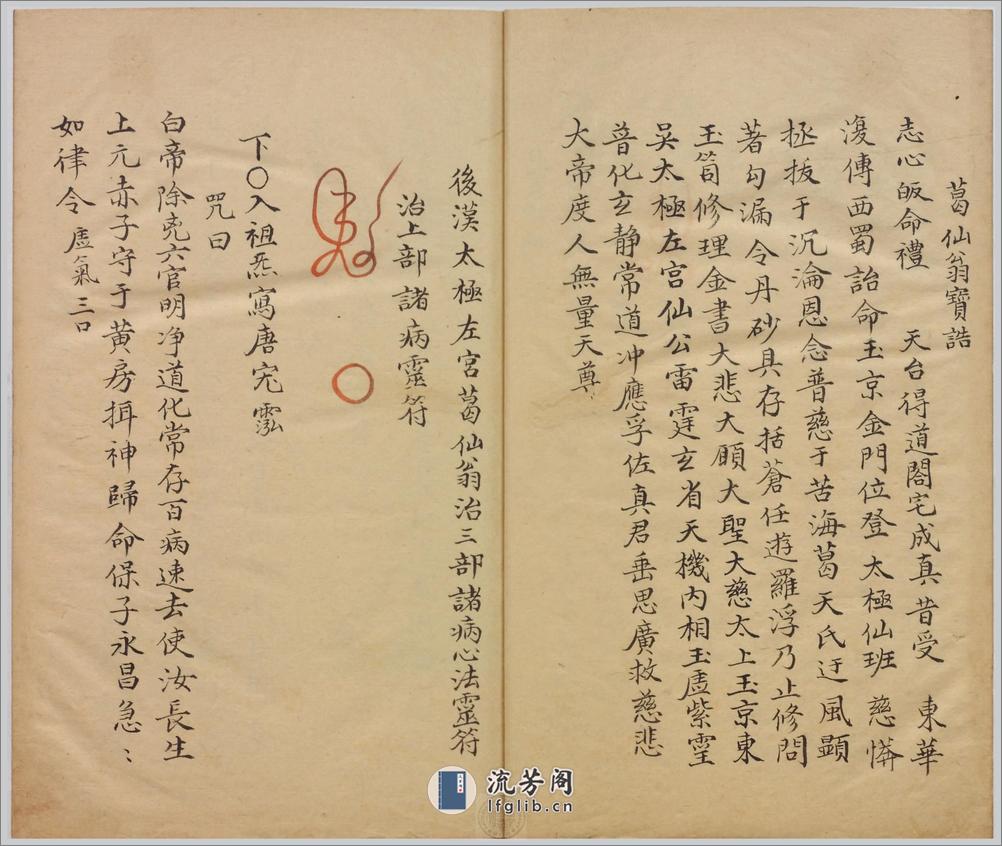 葛仙翁寶誥
志心皈命禮 天台得道閣宅成真昔受 東華
復傳西蜀詔命玉京金門位登 太極仙班 慈憐
拯拔于沉淪恩念普慈于苦海葛天氏迂風顯
著勾漏令丹砂具存括蒼任遊羅浮乃止修問
玉笥修理金書大悲大願大聖大慈太上玉京東
吳太極左宮仙公雷霆玄省天機內相玉虛紫靈
普化玄靜常道冲應孚佐真君垂思廣救慈悲
大帝度人無量天尊
後漢太極左宮葛仙翁治三部諸病心法靈符
治上部諸病靈符
下〇入祖炁寫唐宄
咒曰
白帝除兇六官明净道化常存百病速去使汝長生
上元赤子守于黄房揖神歸命保子永昌急〻
如律令 虛氣三口
流芳阁
lfglib.cn